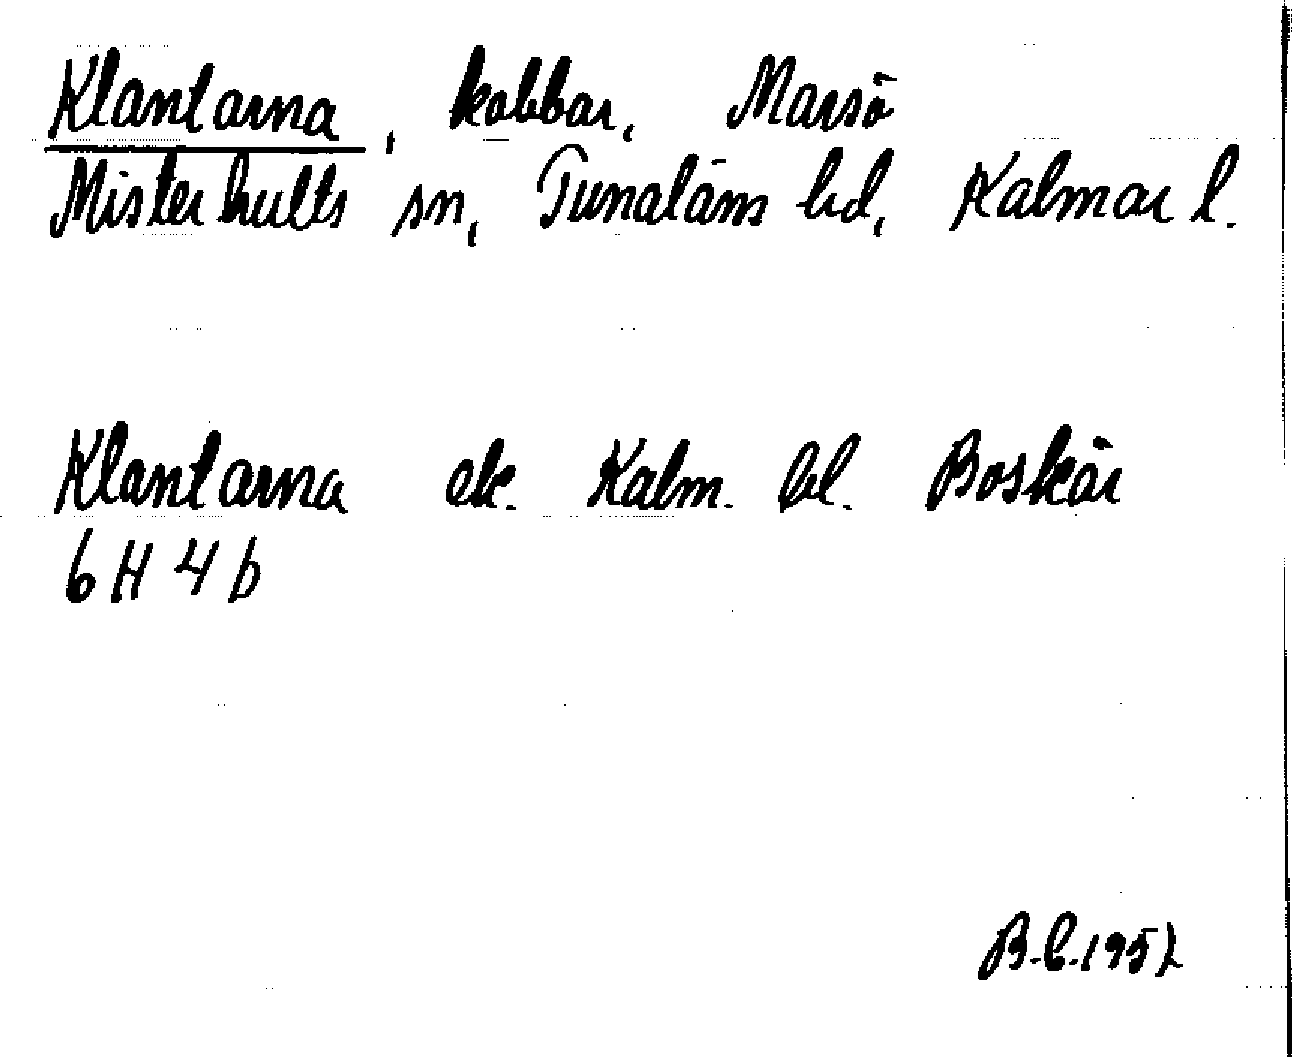 Klantarna, kobbar, Marsö
Misterhults sn, Tunaläns hd, Kalmar l.
Klantarna ek. Kalm. bl. Boskär
6 H 4 b
B.C.1952